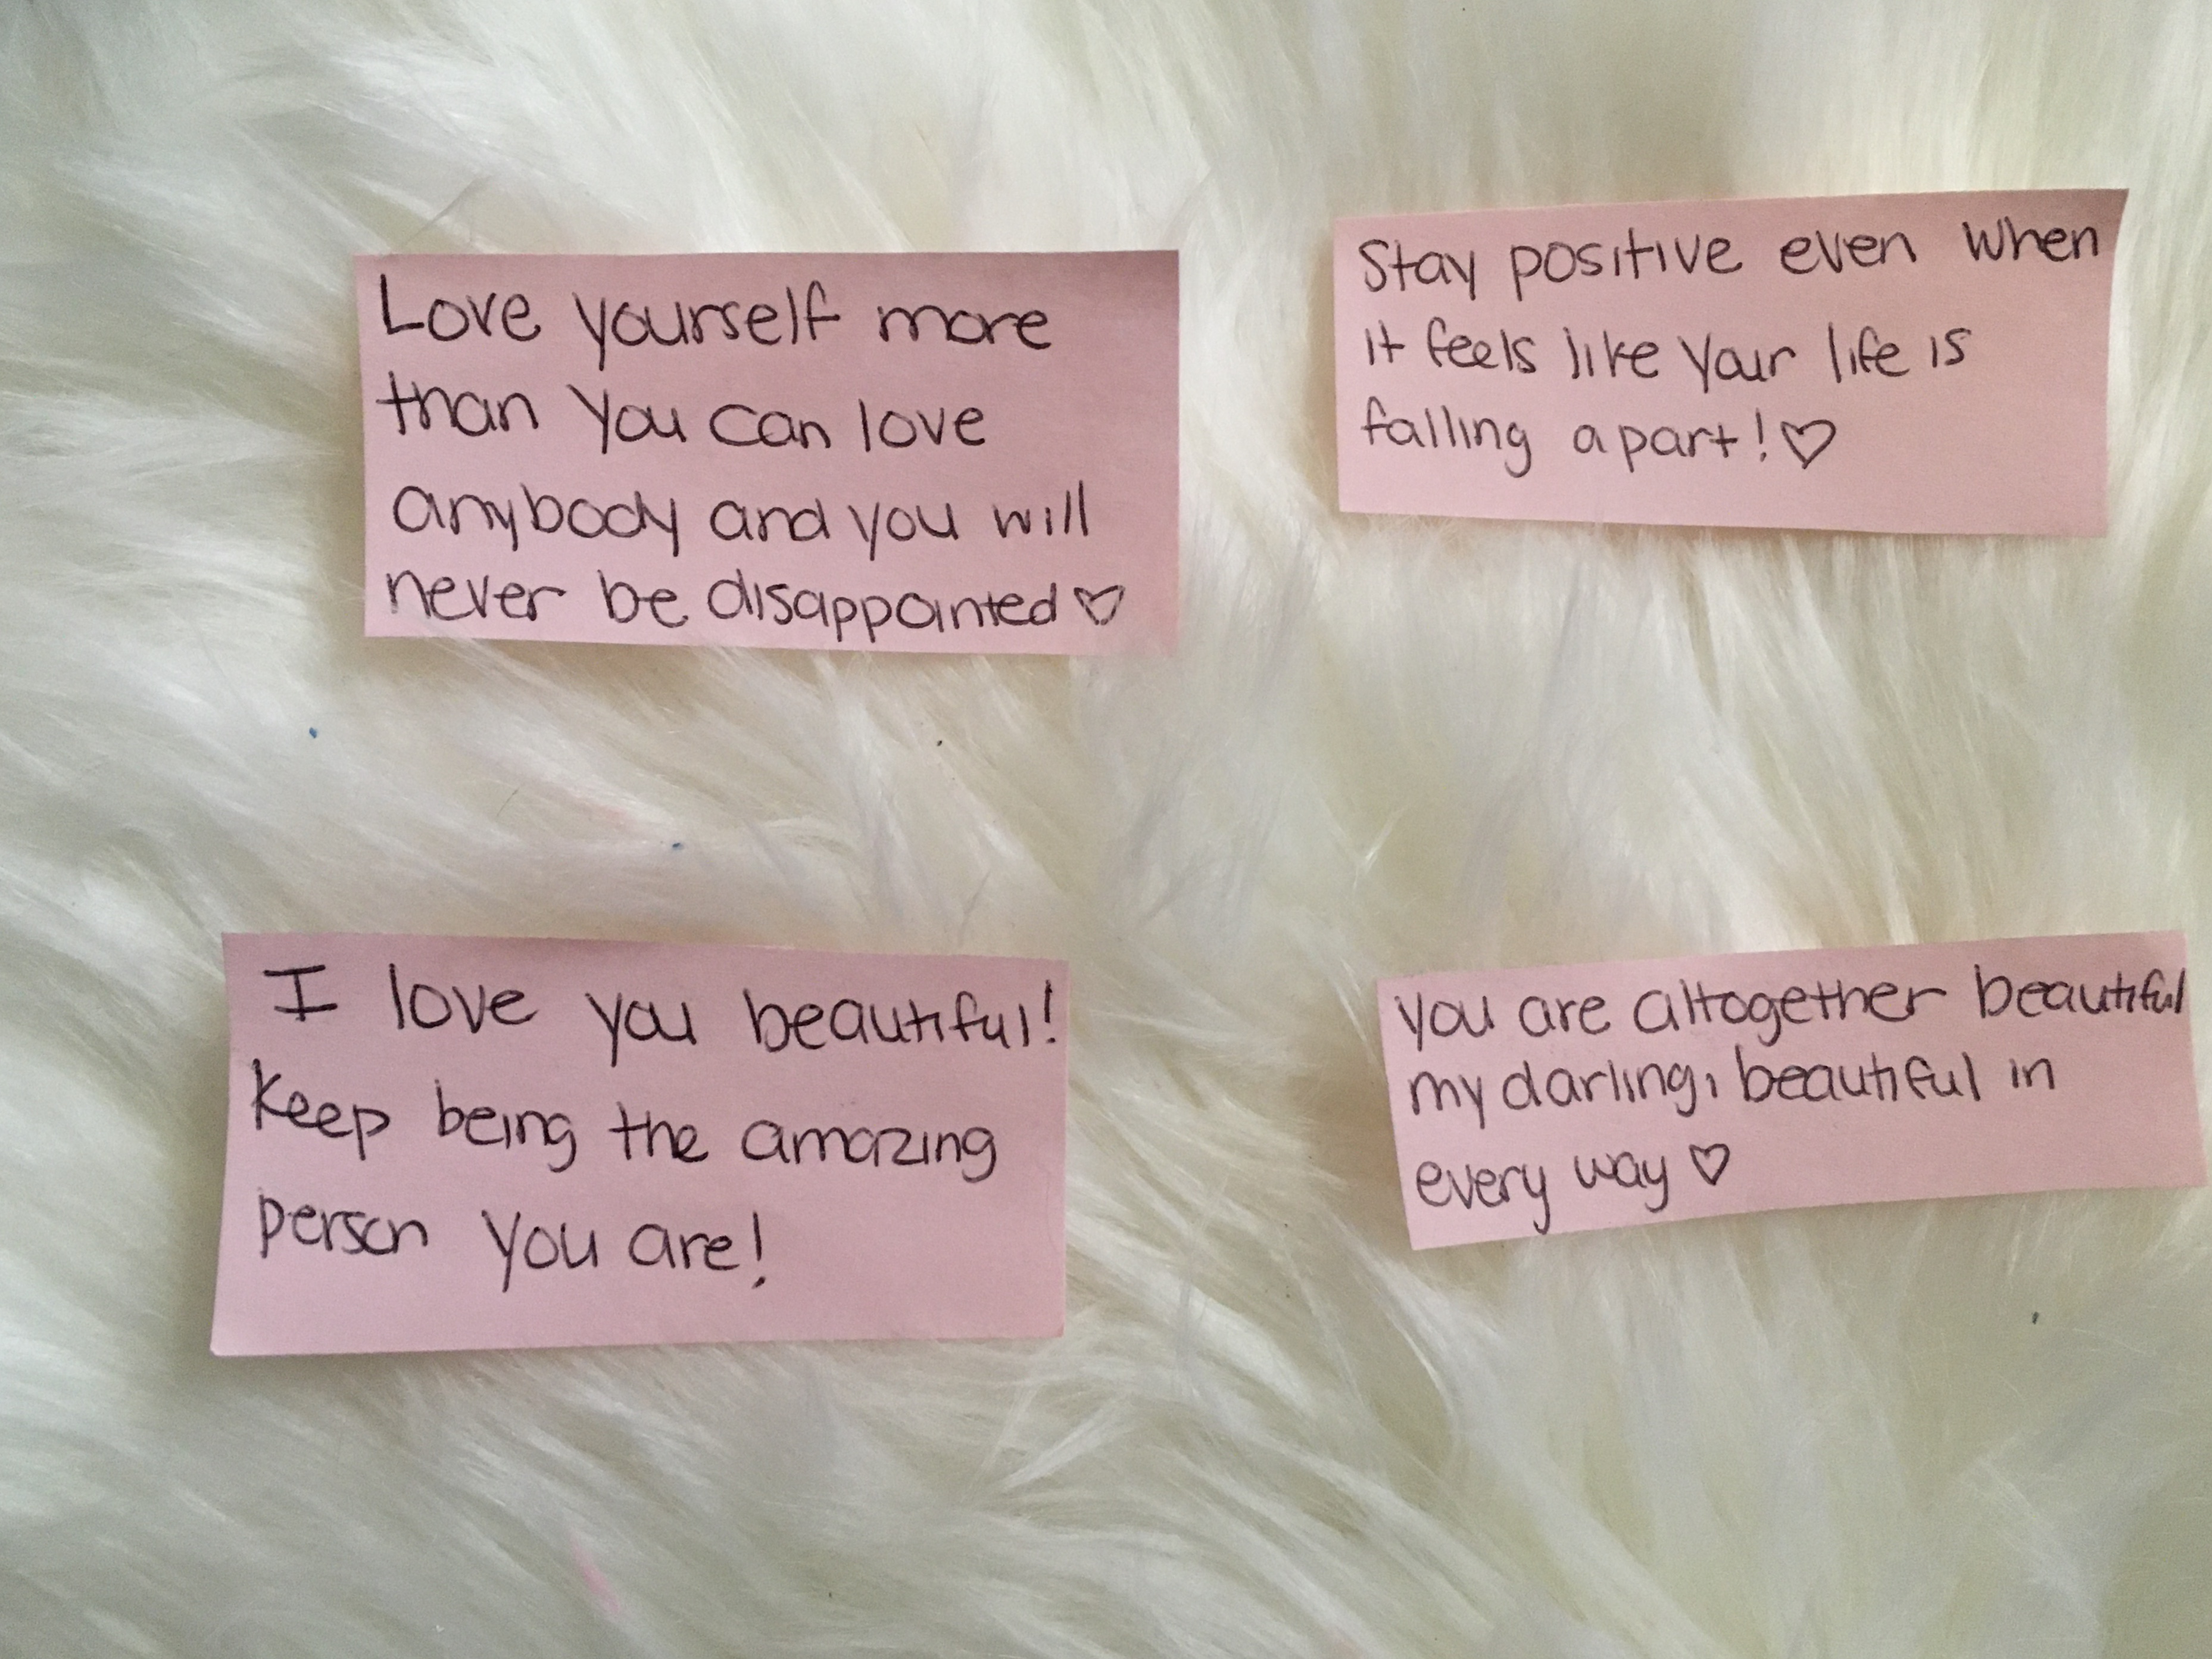 Love yourself more
than you can love
anybody and you will
never be disappointed ♡
Stay positive even when
it feels like your life is
falling apart! ♡
I love you beautiful!
Keep being the amazing
person you are!
you are altogether beautiful
my darling, beautiful in
every way ♡